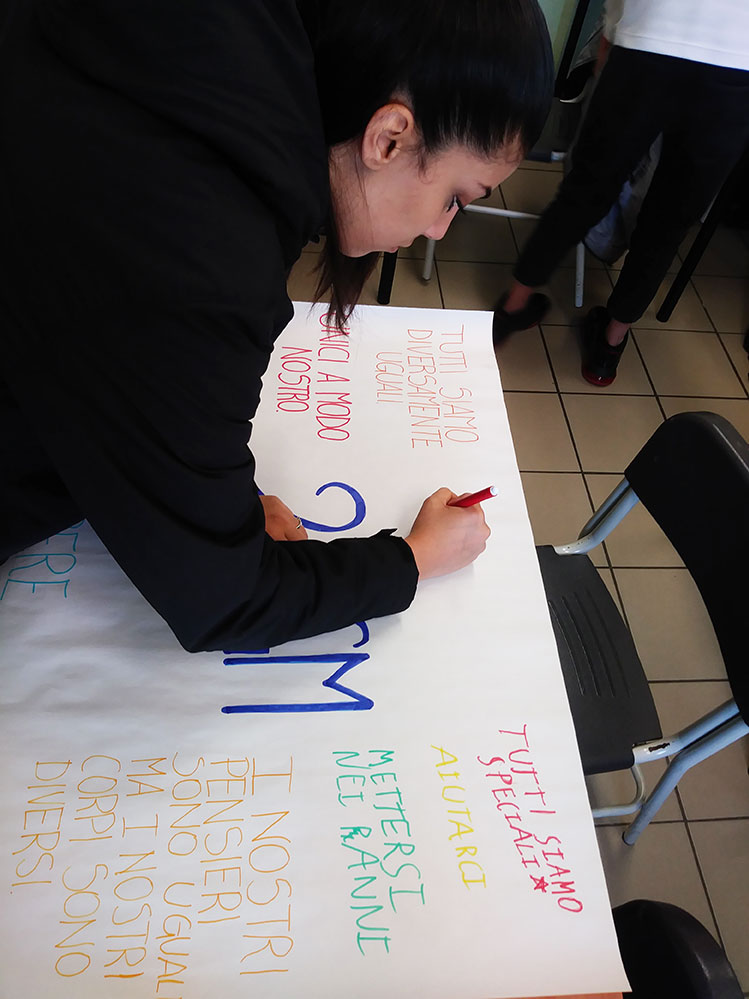 TUTTI SIAMO
DIVERSAMENTE
UGUALI
UNICI A MODO
NOSTRO.
TUTTI SIAMO
SPECIALI
AIUTARCI
METTERSI
NEI RANNI
I NOSTRI
PENSIERI
SONO UGUALI
MA I NOSTRI
CORPI SONO
DIVERSI.